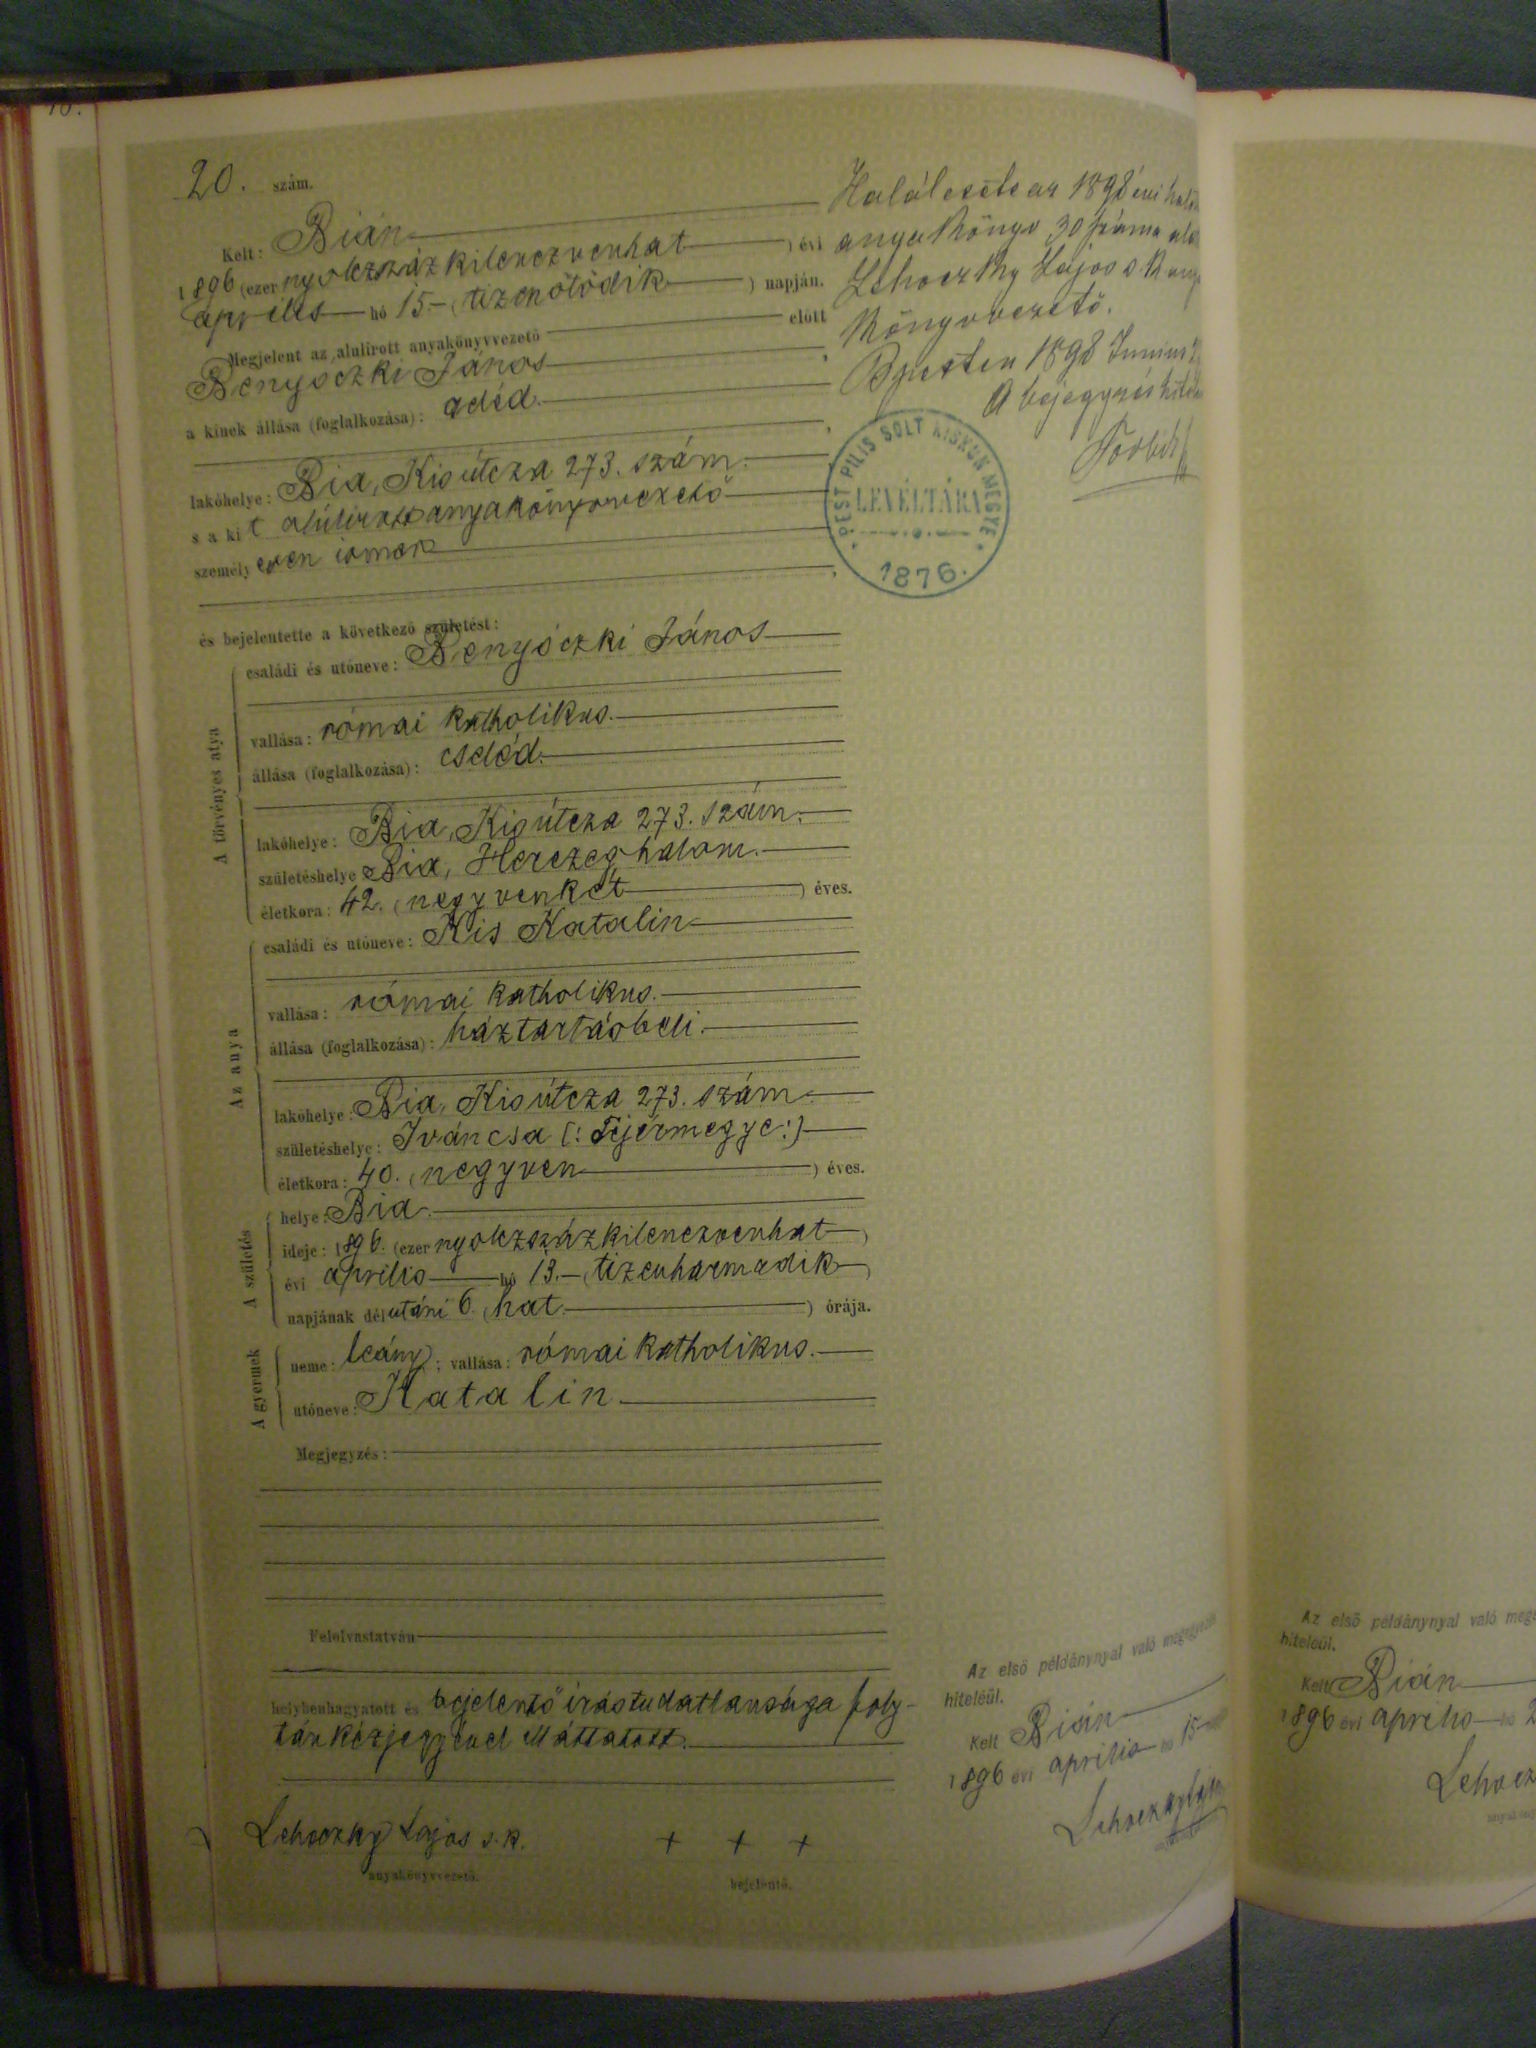 20. szám.
Kelt: Bián
1896 (ezer nyolczszáz kilenczvenhat) évi
április hó 15.- (tizenötödik) napján.
Megjelent az alulirott anyakönyvvezető előtt
Benyóczki János,
a kinek állása (foglalkozása): cseléd.
lakóhelye: Bia, Kisútcza 273. szám.
s a kit alúlirott anyakönyvvezető
személyesen ismer,
és bejelentette a következő születést:
A törvényes atya
családi és utóneve: Benyóczki János
vallása: római katholikus.
állása (foglalkozása): cseléd.
lakóhelye: Bia, Kisútcza 273. szám.
születéshelye Bia, Herczeghalom.
életkora: 42. (negyvenkét) éves.
Az anya
családi és utóneve: Kis Katalin
vallása: római katholikus.
állása (foglalkozása): háztartásbeli.
lakóhelye: Bia, Kisútcza 273. szám.
születéshelye: Iváncsa (: Fejérmegye:)
életkora: 40. (negyven) éves.
A születés
helye: Bia.
ideje: 1896. (ezer nyolczszázkilenczvenhat)
évi április hó 13.- (tizenharmadik)
napjának délutáni 6. (hat.) órája.
A gyermek
neme: leány; vallása: római katholikus.
utóneve: Katalin
Megjegyzés:
Felolvastatván
helybenhagyatott és bejelentő irástudatlansága foly-
tán kézjegyével elláttatott.
Lehoczky Lajos s. k.
anyakönyvvezető.
+ + +
bejelentő.
Halálesete az 1898 évi
anyakönyv 30 száma
Lehoczky Lajos s. k.
könyvvezető.
Bpesten 1898 Junius
A bejegyzés
PEST PILIS SOLT KISKUN MEGYE
LEVÉLTÁRA
1876.
Az első példánynyal való megegyezés
hiteléül.
Kelt Bián
1896 évi április hó 15
Lehoczky Lajos
Az első példánynyal való
hiteléül.
Kelt Bián
1896 évi április hó 2